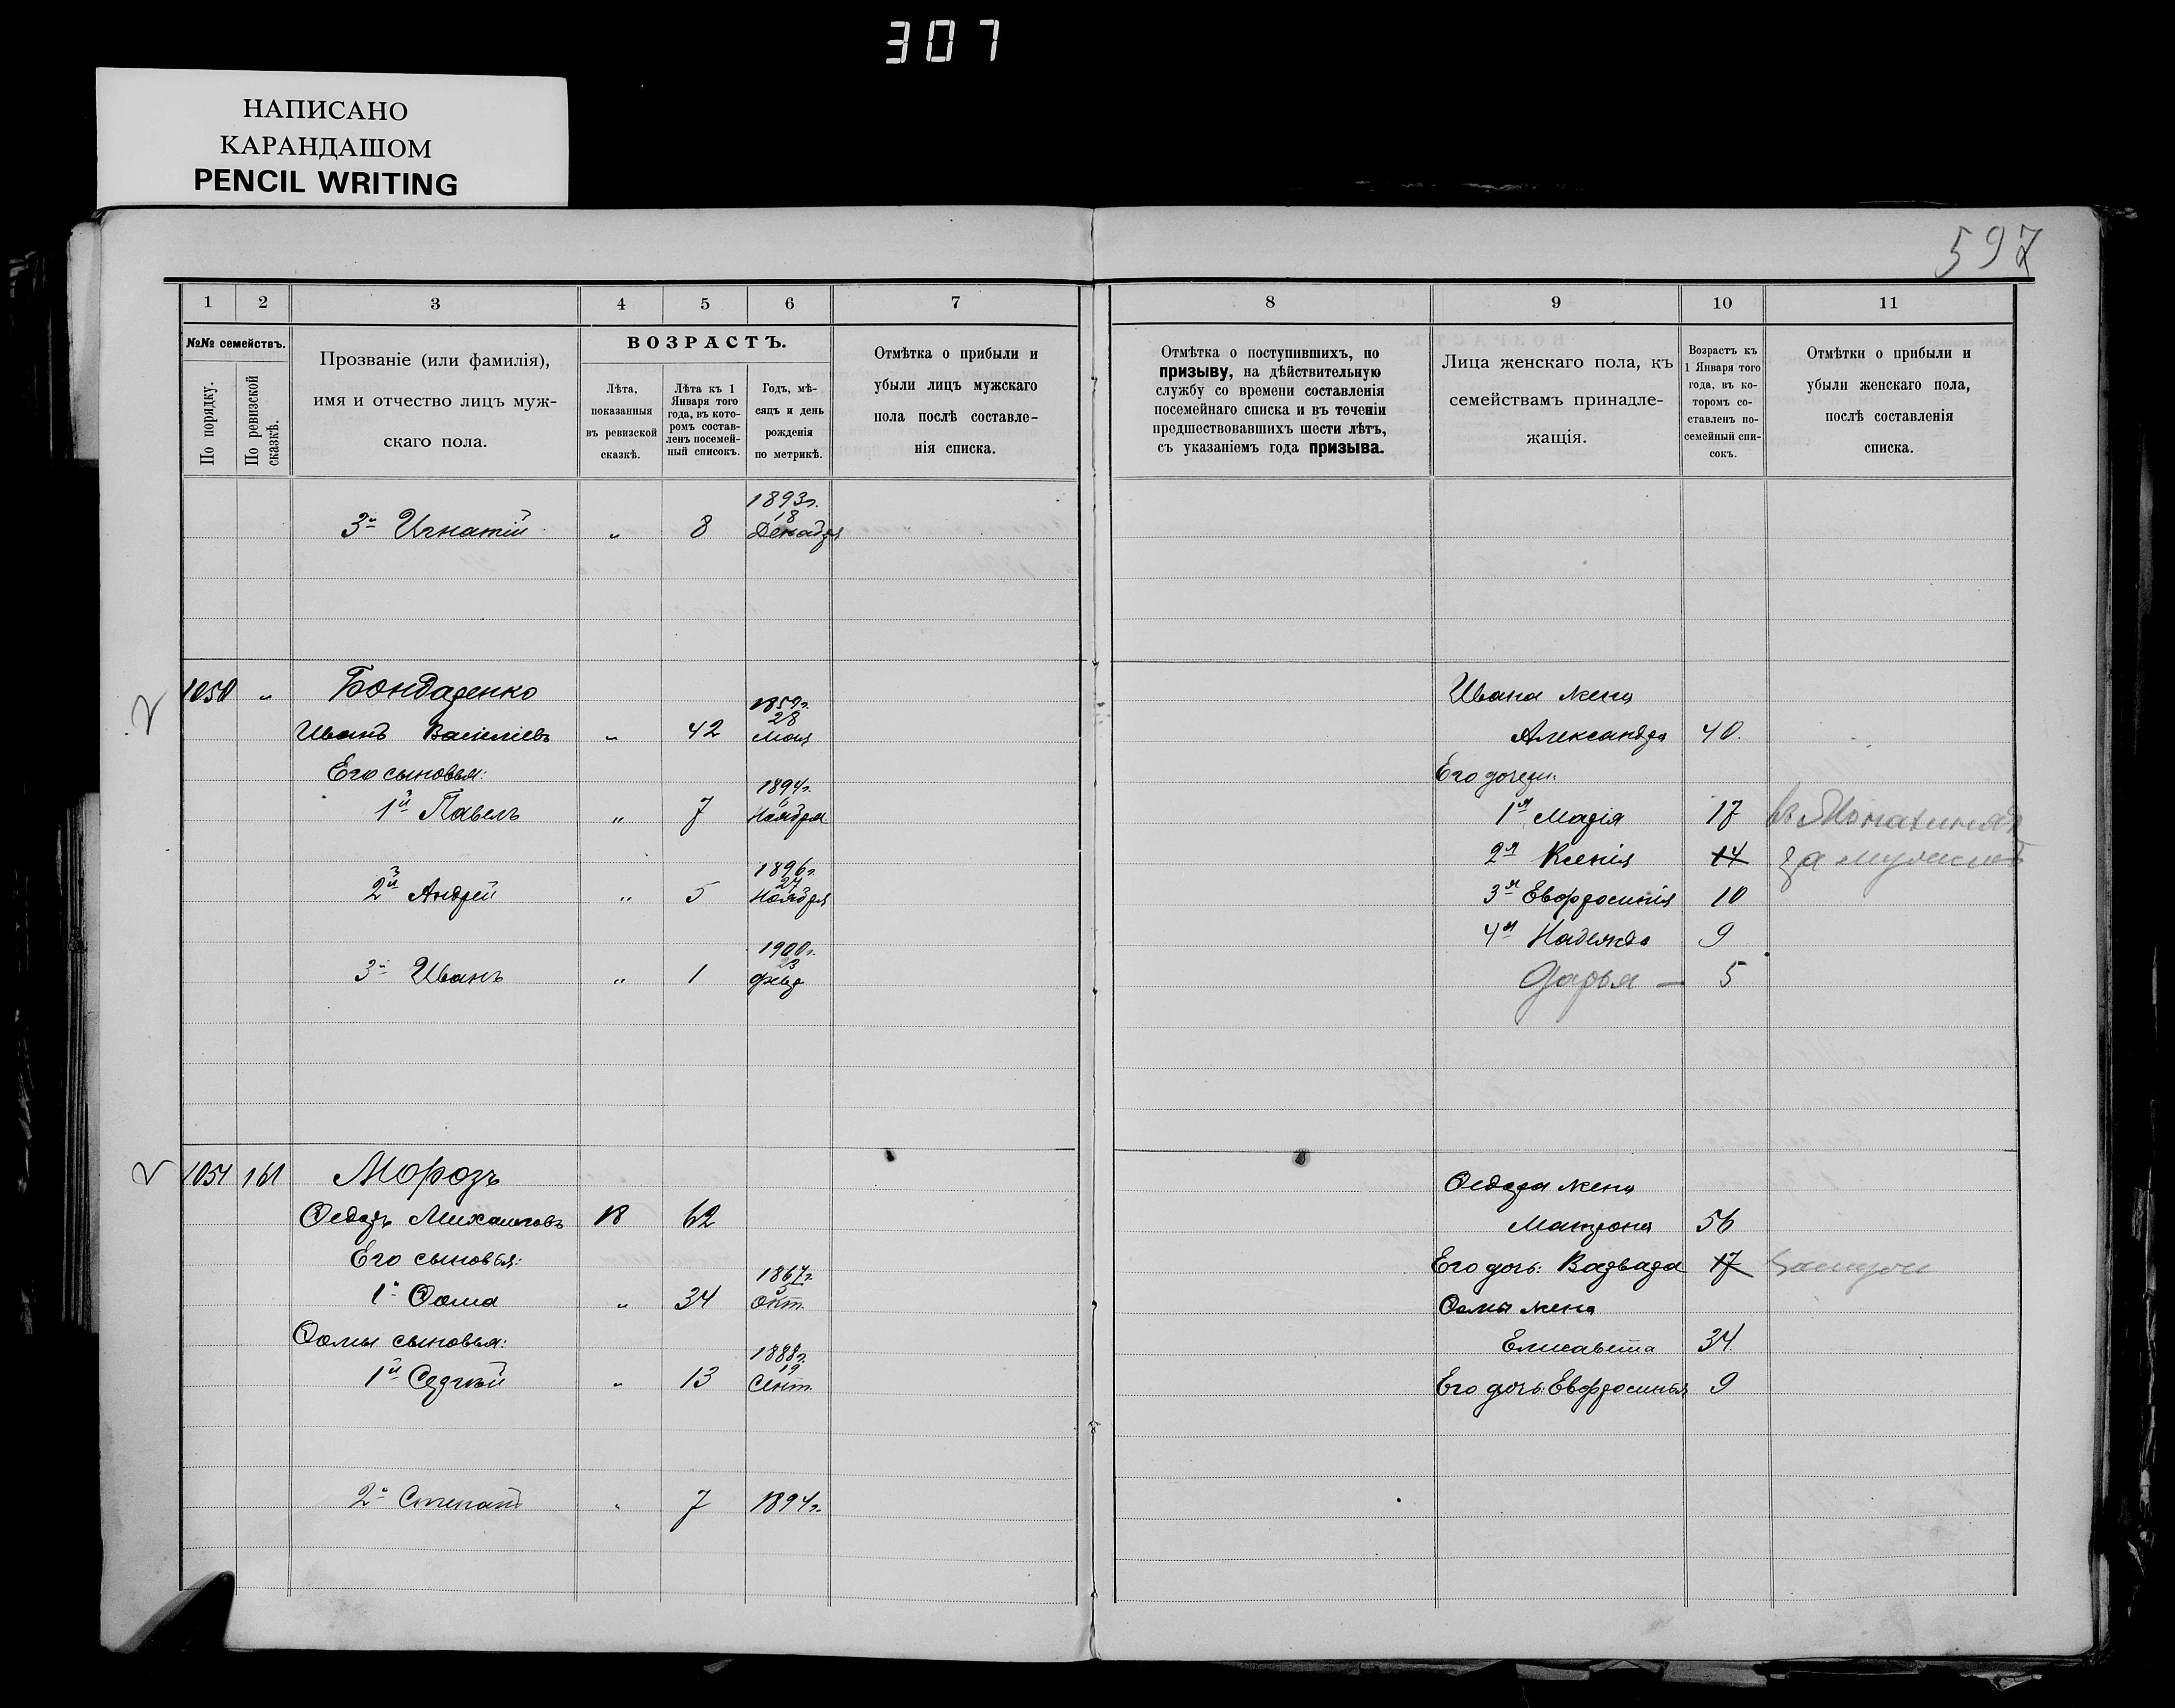 307
НАПИСАНО
КАРАНДАШОМ
PENCIL WRITING
597
1 2 3 4 5 6 7 8 9 10 11
№№ семействъ.
По порядку.
По ревизской сказкѣ.
Прозваніе (или фамилія),
имя и отчество лицъ муж-
скаго пола.
ВОЗРАСТЪ.
Лѣта,
показанныя
въ ревизской
сказкѣ.
Лѣта къ 1
Января того
года, въ кото-
ромъ состав-
ленъ посемей-
ный списокъ.
Годъ, мѣ-
сяцъ и день
рожденія
по метрикѣ.
Отмѣтка о прибыли и
убыли лицъ мужскаго
пола послѣ составле-
нія списка.
Отмѣтка о поступившихъ, по
призыву, на дѣйствительную
службу со времени составленія
посемейнаго списка и въ теченіи
предшествовавшихъ шести лѣтъ,
съ указаніемъ года призыва.
Лица женскаго пола, къ
семействамъ принадле-
жащія.
Возрастъ къ
1 Января того
года, въ ко-
торомъ со-
ставленъ по-
семейный спи-
сокъ.
Отмѣтки о прибыли и
убыли женскаго пола,
послѣ составленія
списка.
3й Игнатій " 8 1893г. 18 Декабря
1050 " Бондаренко
Иванъ Васильевъ " 42 1859г. 28 Мая
Его сыновья:
1й Павелъ " 7 1894г. 6 Ноября
2й Андрей " 5 1896г. 27 Ноября
3й Иванъ " 1 1900г. 23 Февр
Ивана жена
Александра 40.
Его дочери:
1я Марія 17
2я Ксенія 14 за мужемъ
3я Евфросинія 10
4я Надежда 9
Дарья — 5
1051 161 Морозъ
Ѳедоръ Михайловъ 18 62
Его сыновья:
1й Ѳома " 34 1867г. 5 Окт.
Ѳомы сыновья:
1й Сергѣй " 13 1888г. 19 Сент.
2й Степанъ " 7 1894г.
Ѳедора жена
Матрона 56
Его дочь: Варвара 17 Замужем
Ѳомы жена
Елисавета 34
Его дочь: Евфросинья 9